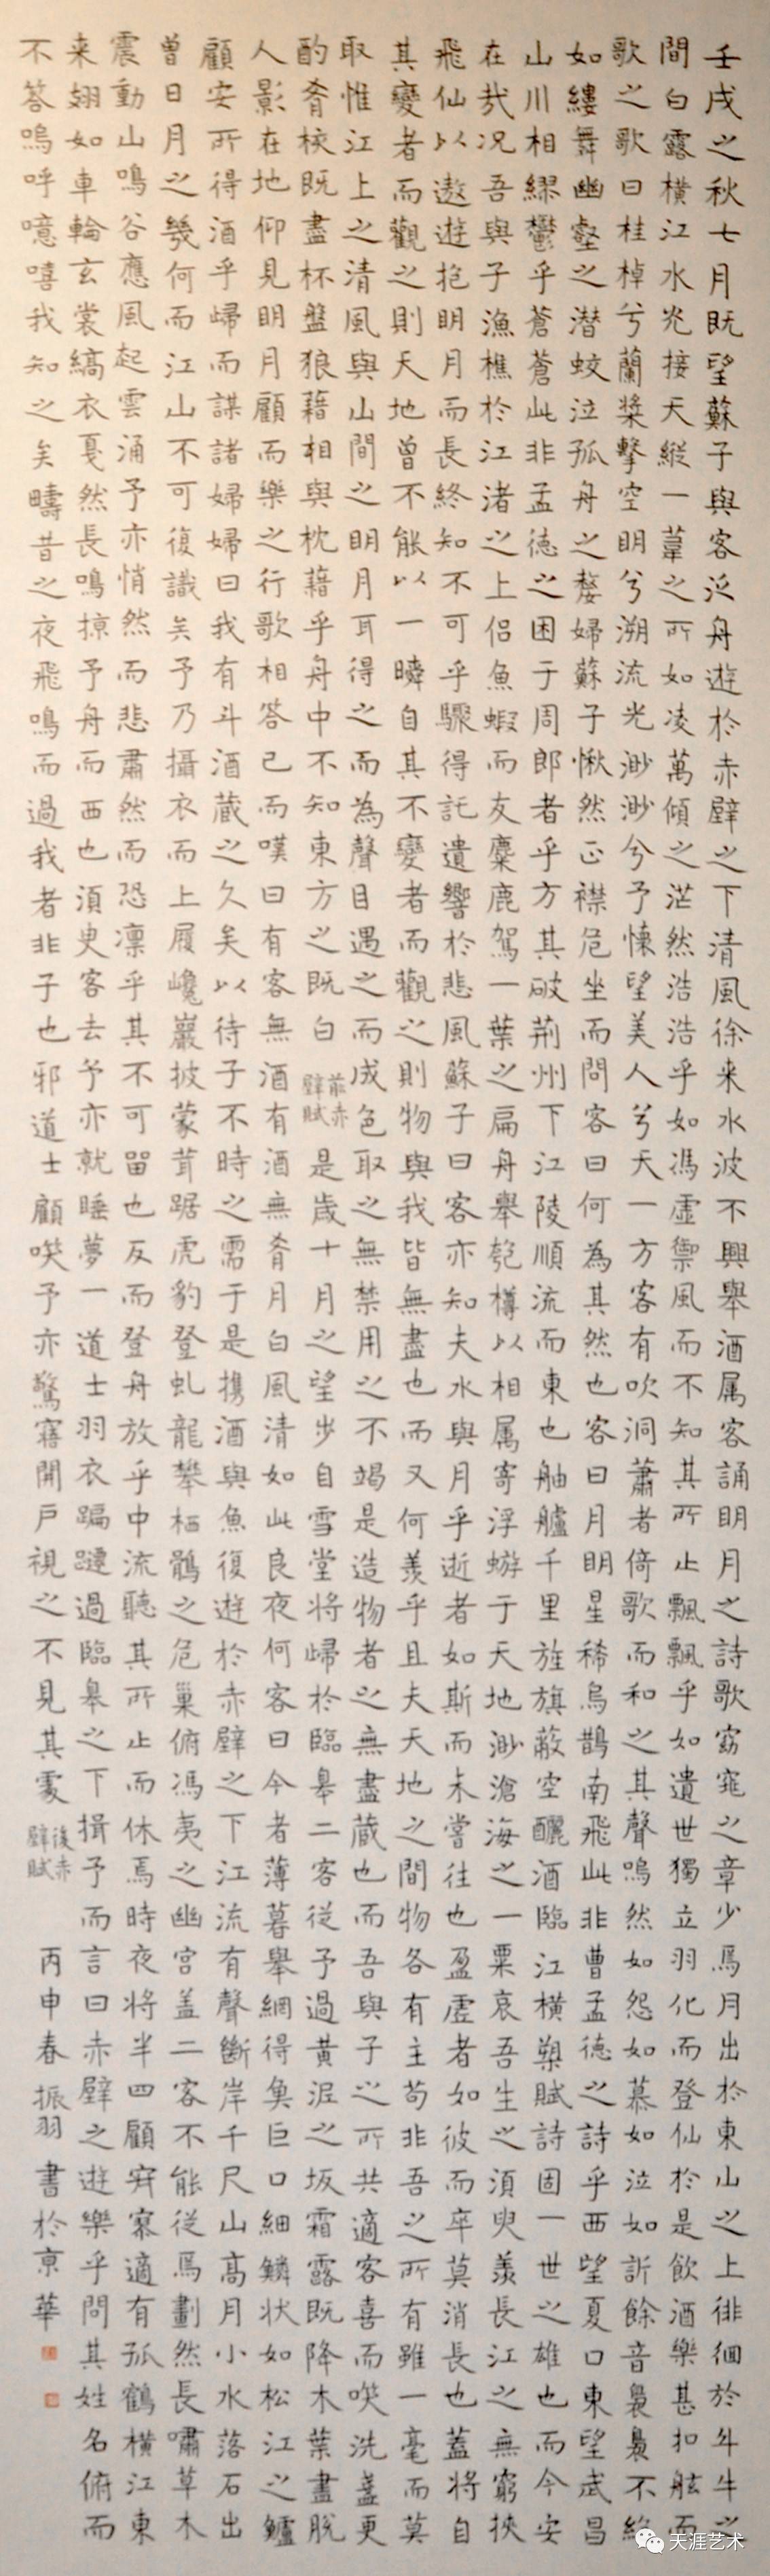 壬戌之秋七月既望蘇子與客泛舟遊於赤壁之下清風徐来水波不興舉酒属客誦明月之詩歌窈窕之章少焉月出於東山之上徘徊於斗牛之
間白露横江水光接天縦一葦之所如凌萬傾之茫然浩浩乎如馮虚禦風而不知其所止飄飄乎如遺世獨立羽化而登仙於是飲酒樂甚扣舷而
歌之歌曰桂棹兮蘭槳擊空明兮溯流光渺渺兮予懐望美人兮天一方客有吹洞蕭者倚歌而和之其聲嗚然如怨如慕如泣如訴餘音裊裊不絶
如縷舞幽壑之潛蛟泣孤舟之嫠婦蘇子愀然正襟危坐而問客曰何為其然也客曰月明星稀烏鵲南飛此非曹孟德之詩乎西望夏口東望武昌
山川相繆鬱乎蒼蒼此非孟德之困于周郎者乎方其破荆州下江陵順流而東也舳艫千里旌旗蔽空釃酒臨江横槊賦詩固一世之雄也而今安
在哉况吾與子漁樵於江渚之上侶魚蝦而友麋鹿駕一葉之扁舟舉匏樽以相属寄浮蝣于天地渺滄海之一粟哀吾生之須臾羨長江之無窮挾
飛仙以遨遊抱明月而長終知不可乎驟得託遺響於悲風蘇子曰客亦知夫水與月乎逝者如斯而未嘗往也盈虚者如彼而卒莫消長也蓋將自
其變者而觀之則天地曾不能以一瞬自其不變者而觀之則物與我皆無盡也而又何羨乎且夫天地之間物各有主苟非吾之所有雖一毫而莫
取惟江上之清風與山間之明月耳得之而為聲目遇之而成色取之無禁用之不竭是造物者之無盡藏也而吾與子之所共適客喜而笑洗盞更
酌肴核既盡杯盤狼藉相與枕藉乎舟中不知東方之既白前赤壁賦是歲十月之望步自雪堂將歸於臨皋二客從予過黄泥之坂霜露既降木葉盡脱
人影在地仰見明月顧而樂之行歌相答已而嘆曰有客無酒有酒無肴月白風清如此良夜何客曰今者薄暮舉網得魚巨口細鱗状如松江之鱸
顧安所得酒乎歸而謀諸婦婦曰我有斗酒藏之久矣以待子不時之需于是携酒與魚復遊於赤壁之下江流有聲斷岸千尺山高月小水落石出
曾日月之幾何而江山不可復識矣予乃攝衣而上履巉巖披蒙茸踞虎豹登虬龍攀栖鶻之危巢俯馮夷之幽宫盖二客不能從焉劃然長嘯草木
震動山鳴谷應風起雲涌予亦悄然而悲肅然而恐凛乎其不可留也反而登舟放乎中流聽其所止而休焉時夜將半四顧寂寥適有孤鶴横江東
来翅如車輪玄裳縞衣戛然長鳴掠予舟而西也須臾客去予亦就睡夢一道士羽衣蹁躚過臨皋之下揖予而言曰赤壁之遊樂乎問其姓名俯而
不答嗚呼噫嘻我知之矣疇昔之夜飛鳴而過我者非子也邪道士顧笑予亦驚寤開戸視之不見其處後赤壁賦丙申春振羽書於京華
天涯艺术